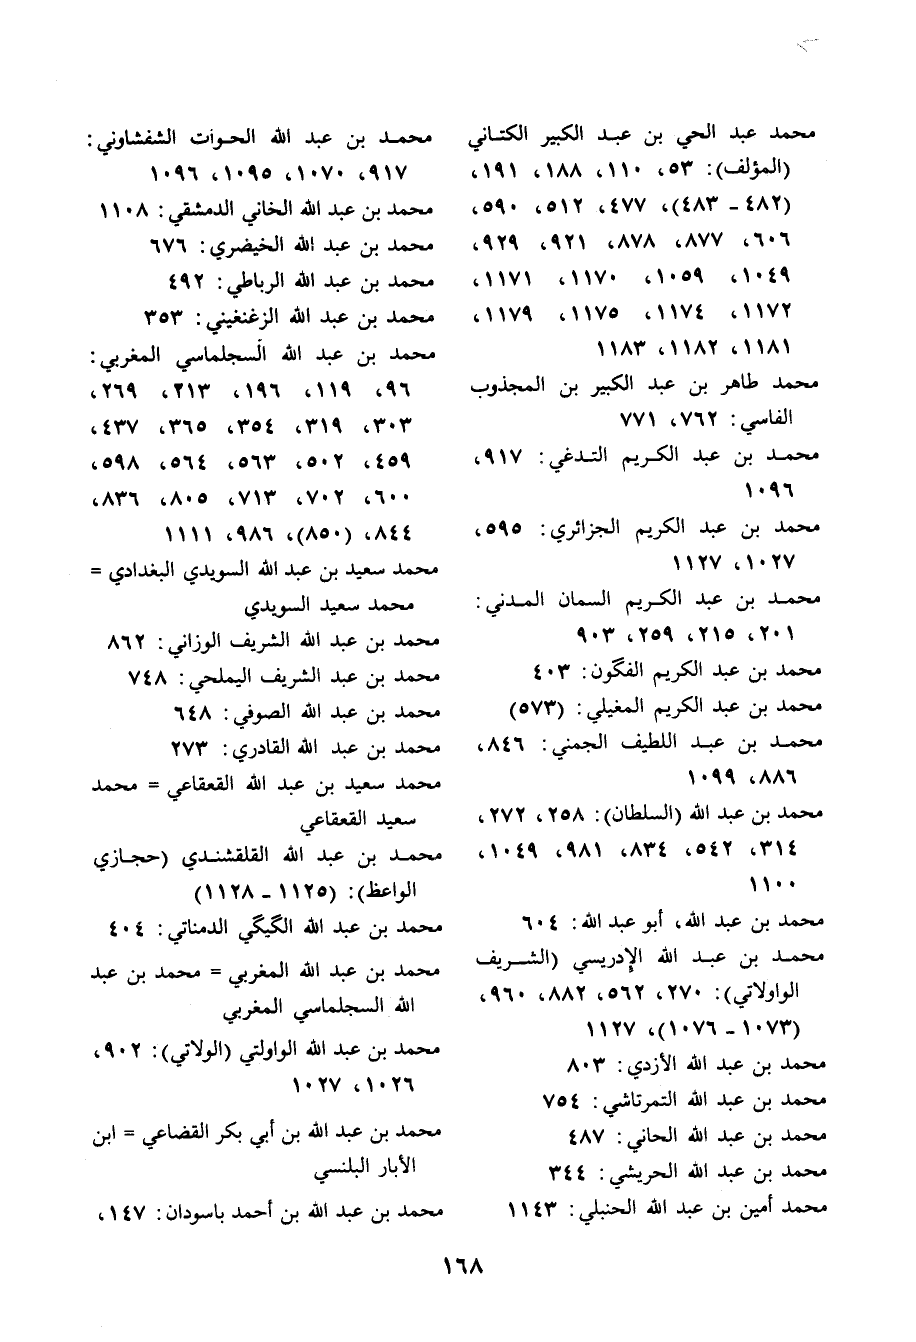 محمد عبد الحي بن عبد الكبير الكتاني
(المؤلف): ٥٣، ١١٠، ١٨٨، ١٩١،
(٤٨٢ - ٤٨٣)، ٤٧٧، ٥١٢، ٥٩٠،
٦٠٦، ٨٧٧، ٨٧٨، ٩٢١، ٩٢٩،
١٠٤٩، ١٠٥٩، ١١٧٠، ١١٧١،
١١٧٢، ١١٧٤، ١١٧٥، ١١٧٩،
١١٨١، ١١٨٢، ١١٨٣
محمد طاهر بن عبد الكبير بن المجذوب
الفاسي: ٧٦٢، ٧٧١
محمد بن عبد الكريم التدغي: ٩١٧،
١٠٩٦
محمد بن عبد الكريم الجزائري: ٥٩٥،
١٠٢٧، ١١٢٧
محمد بن عبد الكريم السمان المدني:
٢٠١، ٢١٥، ٢٥٩، ٩٠٣
محمد بن عبد الكريم الفگون: ٤٠٣
محمد بن عبد الكريم المغيلي: (٥٧٣)
محمد بن عبد اللطيف الجمني: ٨٤٦،
٨٨٦، ١٠٩٩
محمد بن عبد الله (السلطان): ٢٥٨، ٢٧٢،
٣١٤، ٥٤٢، ٨٣٤، ٩٨١، ١٠٤٩،
١١٠٠
محمد بن عبد الله، أبو عبد الله: ٦٠٤
محمد بن عبد الله الإدريسي (الشريف
الواولاتي): ٢٧٠، ٥٦٢، ٨٨٢، ٩٦٠،
(١٠٧٣ - ١٠٧٦)، ١١٢٧
محمد بن عبد الله الأزدي: ٨٠٣
محمد بن عبد الله التمرتاشي: ٧٥٤
محمد بن عبد الله الحاني: ٤٨٧
محمد بن عبد الله الحريشي: ٣٤٤
محمد أمين بن عبد الله الحنبلي: ١١٤٣
محمد بن عبد الله الحوات الشفشاوني:
٩١٧، ١٠٧٠، ١٠٩٥، ١٠٩٦
محمد بن عبد الله الخاني الدمشقي: ١١٠٨
محمد بن عبد الله الخيضري: ٦٧٦
محمد بن عبد الله الرباطي: ٤٩٢
محمد بن عبد الله الزغنغيني: ٣٥٣
محمد بن عبد الله السجلماسي المغربي:
٩٦، ١١٩، ١٩٦، ٢١٣، ٢٦٩،
٣٠٣، ٣١٩، ٣٥٤، ٣٦٥، ٤٣٧،
٤٥٩، ٥٠٢، ٥٦٣، ٥٦٤، ٥٩٨،
٦٠٠، ٧٠٢، ٧١٣، ٨٠٥، ٨٣٦،
٨٤٤، (٨٥٠)، ٩٨٦، ١١١١
محمد سعيد بن عبد الله السويدي البغدادي =
محمد سعيد السويدي
محمد بن عبد الله الشريف الوزاني: ٨٦٢
محمد بن عبد الشريف اليملحي: ٧٤٨
محمد بن عبد الله الصوفي: ٦٤٨
محمد بن عبد الله القادري: ٢٧٣
محمد سعيد بن عبد الله القعقاعي = محمد
سعيد القعقاعي
محمد بن عبد الله القلقشندي (حجازي
الواعظ): (١١٢٥ - ١١٢٨)
محمد بن عبد الله الگيگي الدمناتي: ٤٠٤
محمد بن عبد الله المغربي = محمد بن عبد
الله السجلماسي المغربي
محمد بن عبد الله الواولتي (الولاتي): ٩٠٢،
١٠٢٦، ١٠٢٧
محمد بن عبد الله بن أبي بكر القضاعي = ابن
الأبار البلنسي
محمد بن عبد الله بن أحمد باسودان: ١٤٧،
١٦٨